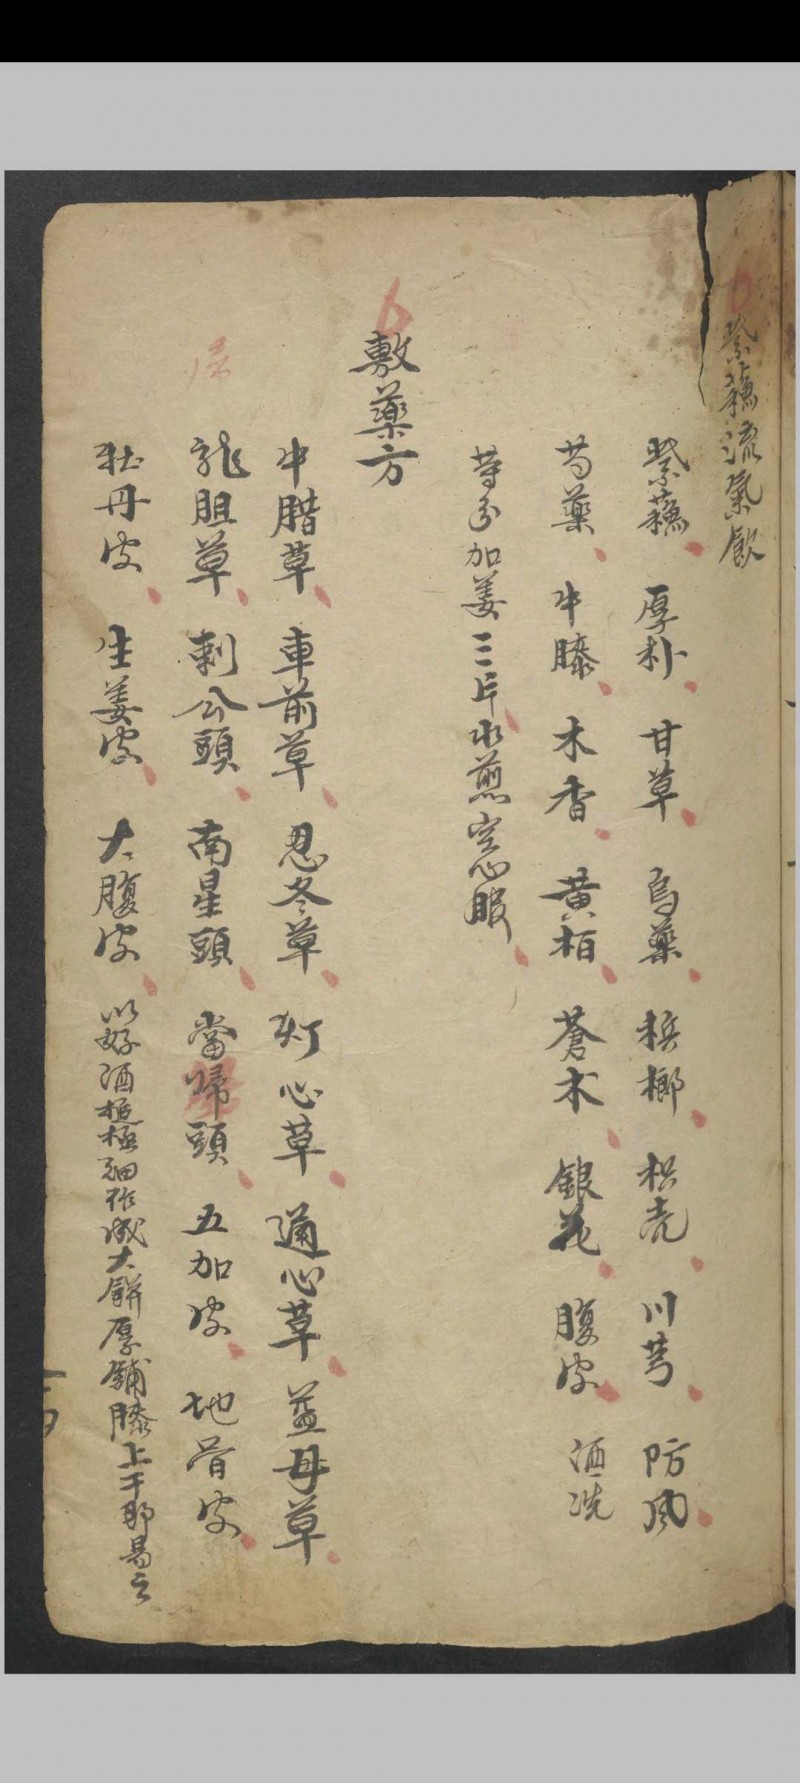 紫蘓流氣飲
紫蘓 厚朴 甘草 烏藥 梹榔 枳壳 川芎 防風
芍藥 牛膝 木香 黄栢 蒼术 銀花 腹皮 酒洗
等分加姜三片水煎空心服
敷藥方
牛腊草 車前草 忍冬草 灯心草 通心草 益母草
龍胆草 剌公頭 南星頭 當歸頭 五加皮 地骨皮
歸
牡丹皮 生姜皮 大腹皮 以好酒極細作成大餅厚鋪膝上干即易之